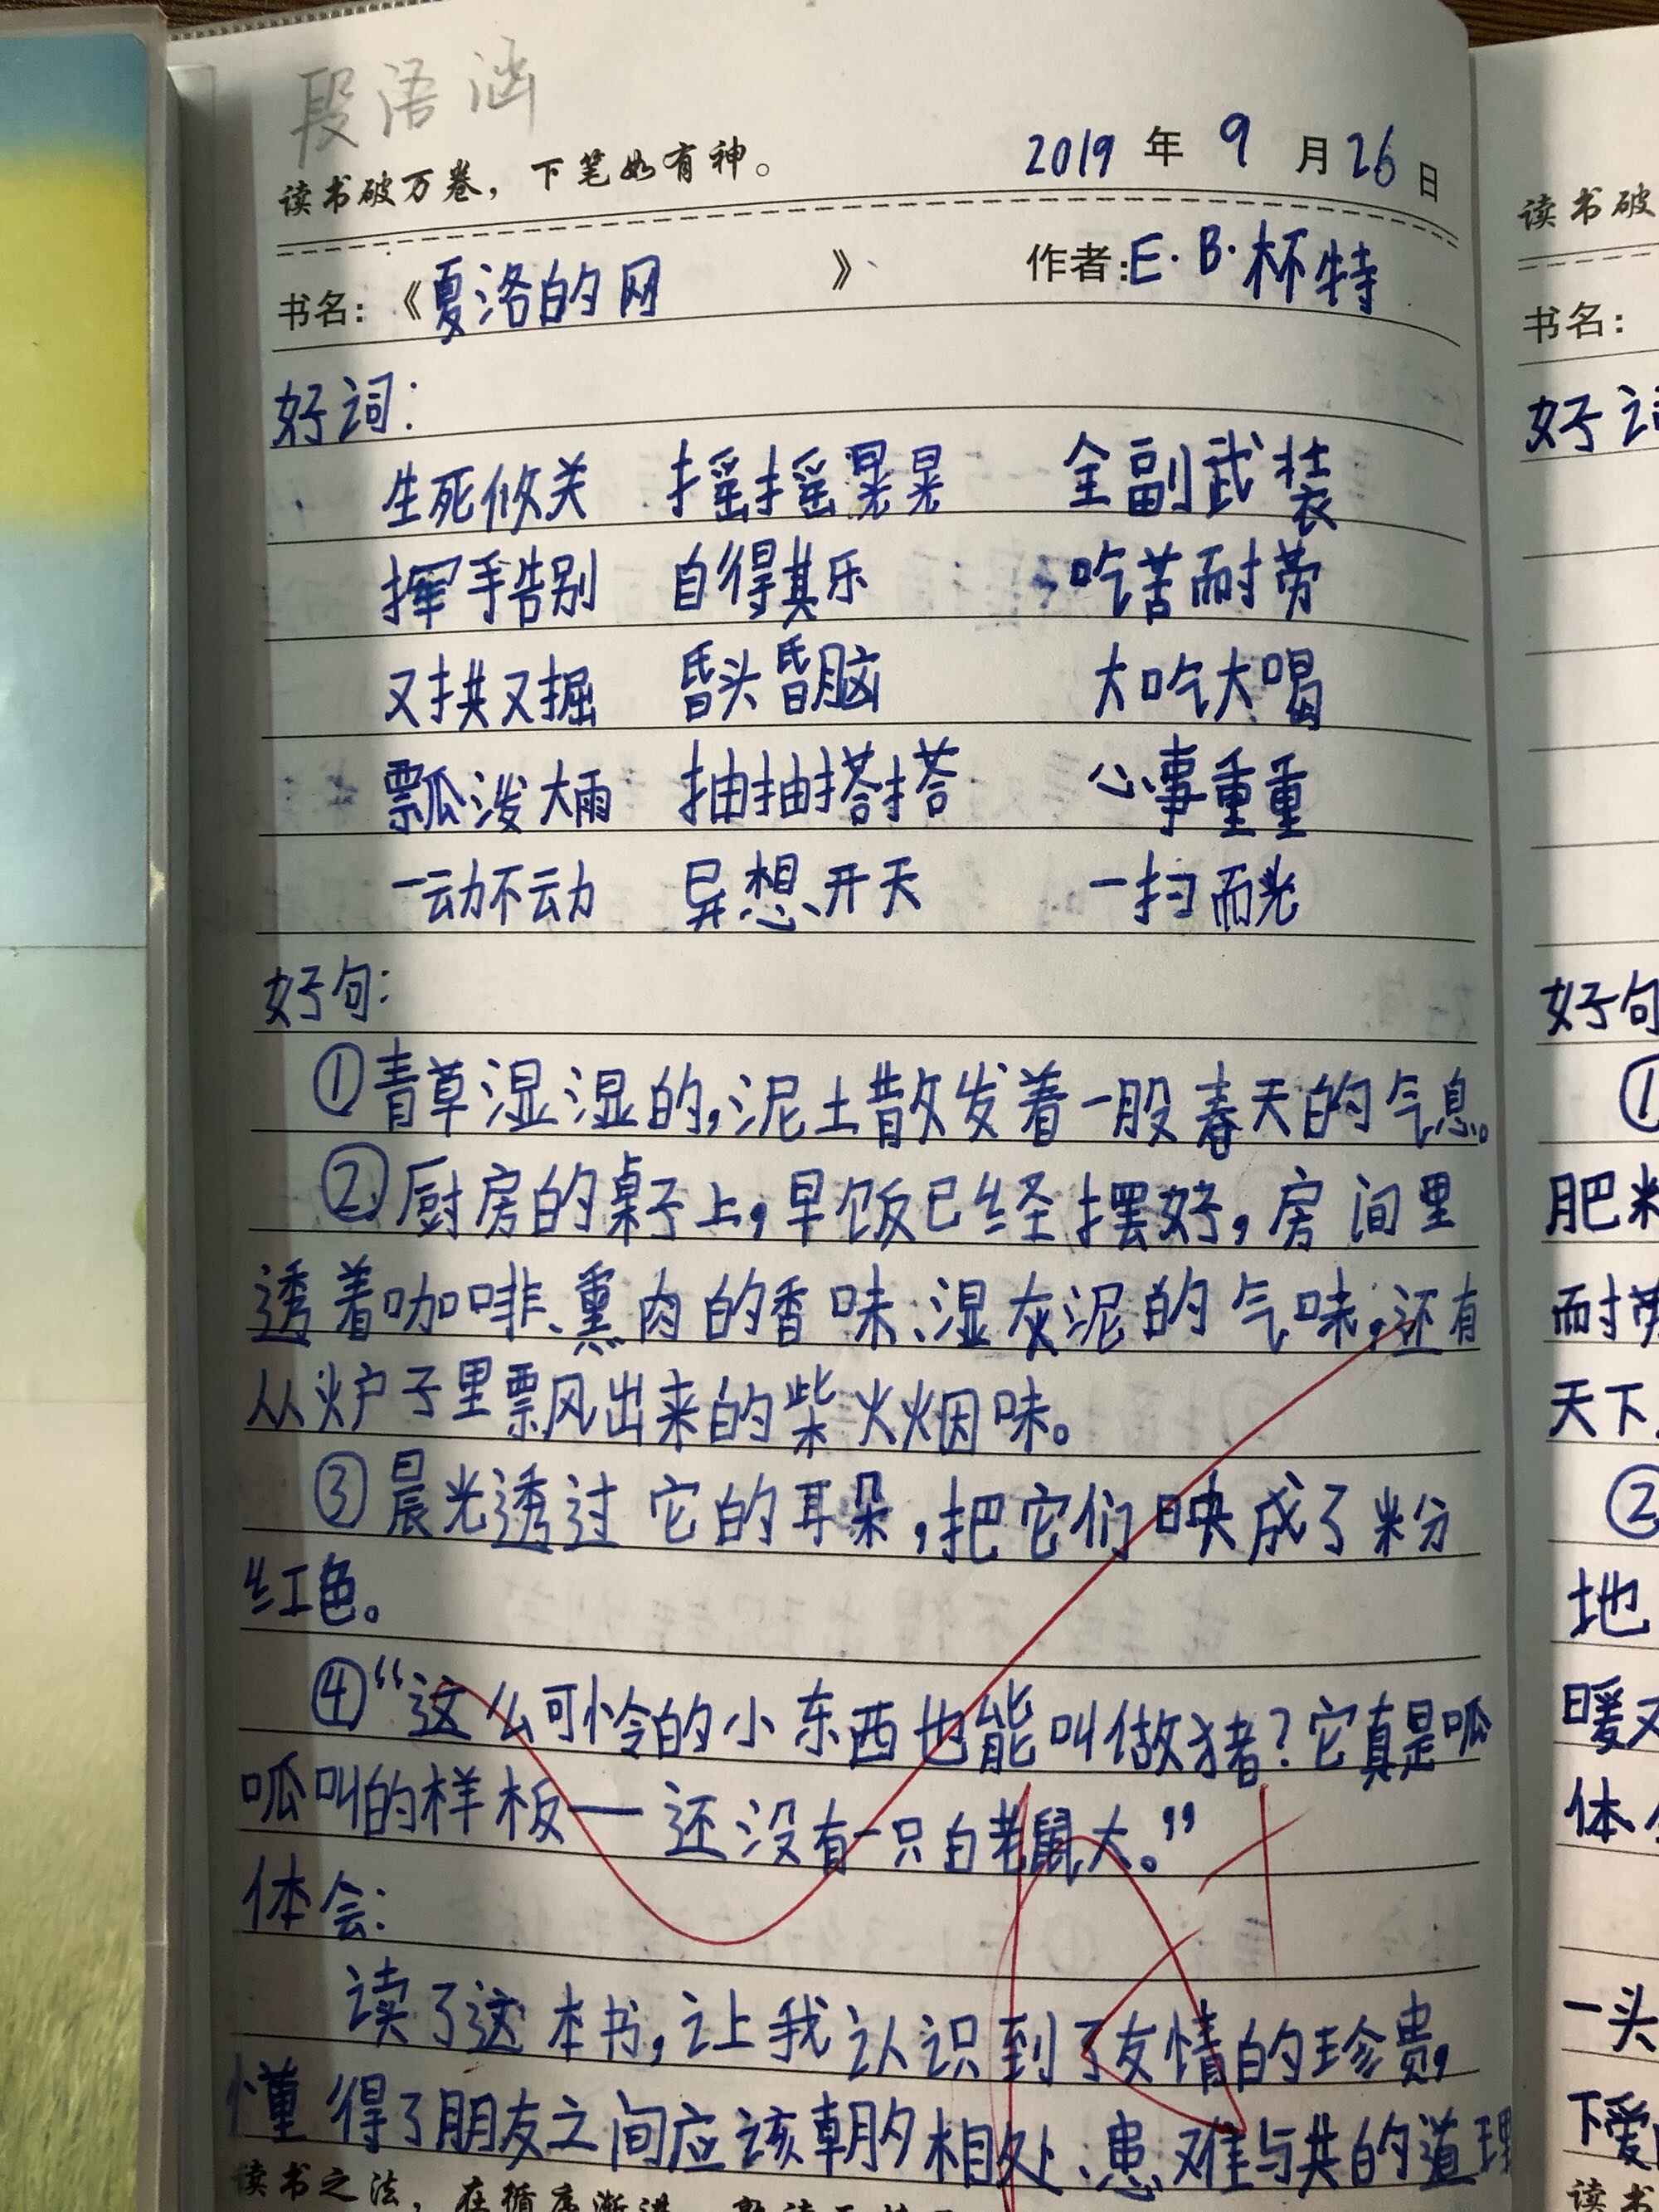 段语涵
读书破万卷，下笔如有神。 2019年9月26日
书名：《夏洛的网》 作者：E·B·杯特
好词：
生死攸关 摇摇晃晃 全副武装
挥手告别 自得其乐 吃苦耐劳
又拱又掘 昏头昏脑 大吃大喝
瓢泼大雨 抽抽搭搭 心事重重
一动不动 异想开天 一扫而光
好句：
①青草湿湿的，泥土散发着一股春天的气息。
②厨房的桌子上，早饭已经摆好，房间里
透着咖啡、熏肉的香味、湿灰泥的气味，还有
从炉子里飘出来的柴火烟味。
③晨光透过它的耳朵，把它们映成了粉
红色。
④“这么可怜的小东西也能叫做猪？它真是呱
呱叫的样板——还没有一只白老鼠大。”
体会：
读了这本书，让我认识到了友情的珍贵，
懂得了朋友之间应该朝夕相处、患难与共的道理
读书之法，在循序渐进，熟读
读书破
书名：
好词
好句
①
肥料
耐劳
天下
②
地
暖又
体会
一头
下爱
读书